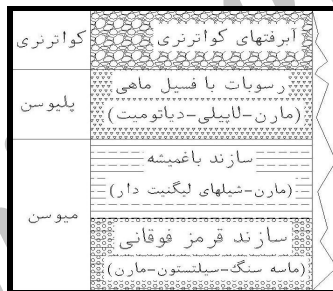 کواترنری
آبرفتهای کواترنری
پلیوسن
رسوبات با فسیل ماهی
(مارن-لاپیلی-دیاتومیت)
میوسن
سازند باغمیشه
(مارن-شیلهای لیگنیت دار)
سازند قرمز فوقانی
(ماسه سنگ-سیلتستون-مارن)